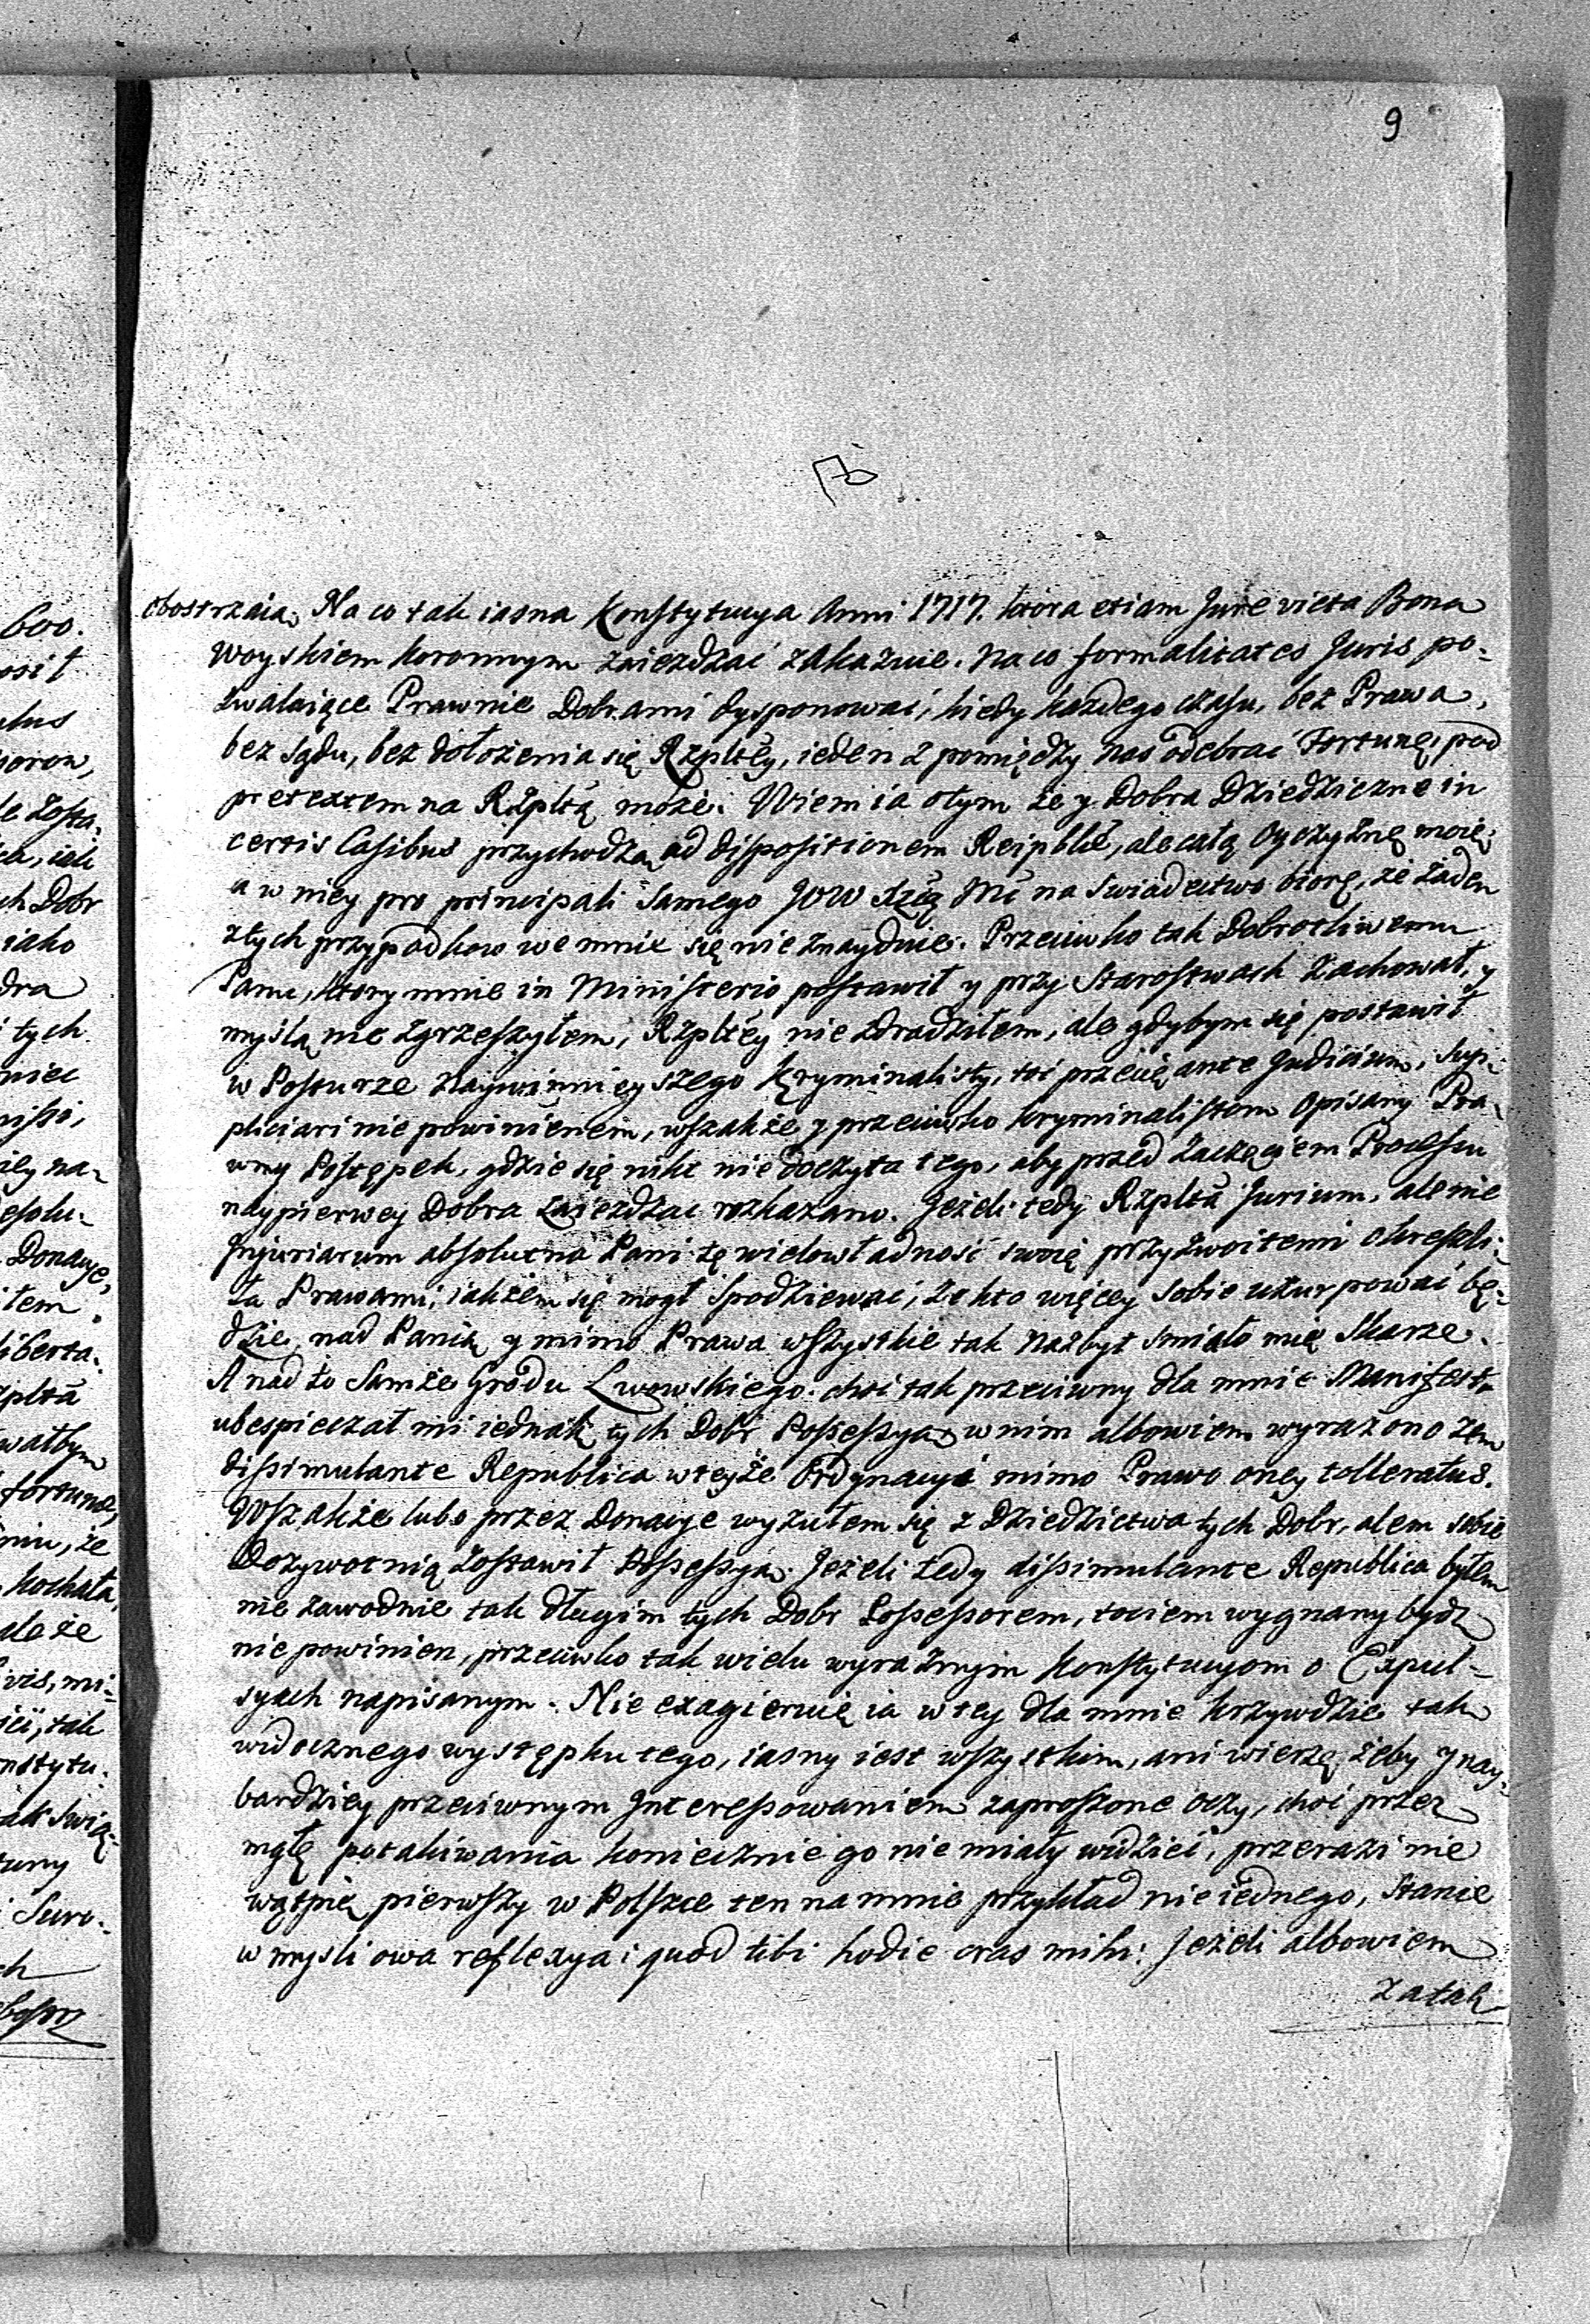 9
600.
obostrzaią. Na co tak iasna Konstytucya Anni 1717. ktora etiam Jure victa Bona
woyskiem koronnym zaiezdzać zakazuie. Na co formalitates Juris po-
zwalaiące Prawnie Dobrami dysponować, kiedy każdego czasu, bez Prawa,
bez sądu, bez dołożenia się Rzpltey, ieden z pomiędzy nas odebrać Fortunę, pod
pretextem na Rzpltą może. Wiem ia otym że y Dobra Dziedziczne in
certis Casibus przychodzą ad dispositionem Reipblcæ, ale całą Oyczyznę moię,
a w niey pro principali samego JOW Xżcą Mć na swiadectwo biorę, że żaden
złych przypadkow we mnie się nie znayduie. Przeciwko tak Dobrotliwemu
Panu, ktory mnie in Ministerio postawił y przy Starostwach zachował, y
myslą nie zgrzeszyłem, Rzpltey nie zdradziłem, ale gdybym się postawił
w Posturze naywinnieyszego kryminalisty, toć przecię ante Judicium, sup-
pliciari nie powinienem, wszakże y przeciwko kryminalistom opisany Pra-
wny Postępek, gdzie się nikt nie doczyta tego, aby przed zaczęciem Processu
naypierwey Dobra zaiezdzac rozkazano. Jeżeli tedy Rzplta Jurium, ale nie
Injuriarum absolutna Pani tę wielowładność swoię przyzwoitemi okreszli-
ła Prawami, iakżem się mogł spodziewać, że kto więcey sobie uzurpować bę-
dzie, nad Panią y mimo Prawa wszystkie tak nazbyt smiało mię skarze.
A nad to Samże Grodu Lwowskiego choć tak przeciwny dla mnie Manifest,
ubespieczał mi iednak tych Dobr Possessyą, w nim albowiem wyrażono żem
dissimulante Republica w teyże Ordynacyi mimo Prawo oney tolleratus.
Wszakże lubo przez Donacye wyzułem się z Dziedzictwa tych Dobr, alem sobie
Dozywotnią zostawił Possessyą. Jeżeli tedy dissimulante Republica byłem
nie zawodnie tak długim tych Dobr Possessorem, tociem wygnany bydz
nie powinien, przeciwko tak wielu wyraznym Konstytucyom o Expul-
syach napisanym. Nie exagieruię ia w tey dla mnie krzywdzie tak
widocznego występku tego, iasny iest wszystkim, ani wierzę żeby y nay-
bardziey przeciwnym Interessowaniem zaproszone oczy, choć przez
mgłę potakiwania koniecznie go nie miały widzieć, przerazi nie
wątpię pierwszy w Polszcze ten na mnie przykład nie iednego, stanie
w mysli owa reflexya: quod tibi hodie cras mihi: Jeżeli albowiem
za tak